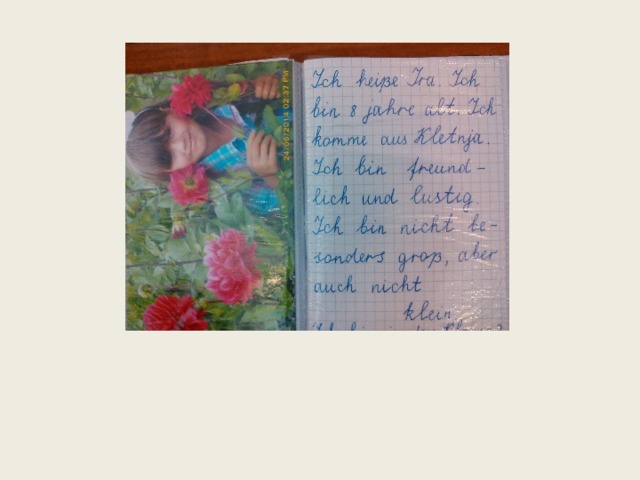 24/06/2014 02:37 PM
Ich heiße Ira. Ich
bin 8 jahre alt. Ich
komme aus Kletnja.
Ich bin freund-
lich und lustig.
Ich bin nicht be-
sonders groß, aber
auch nicht
klein.